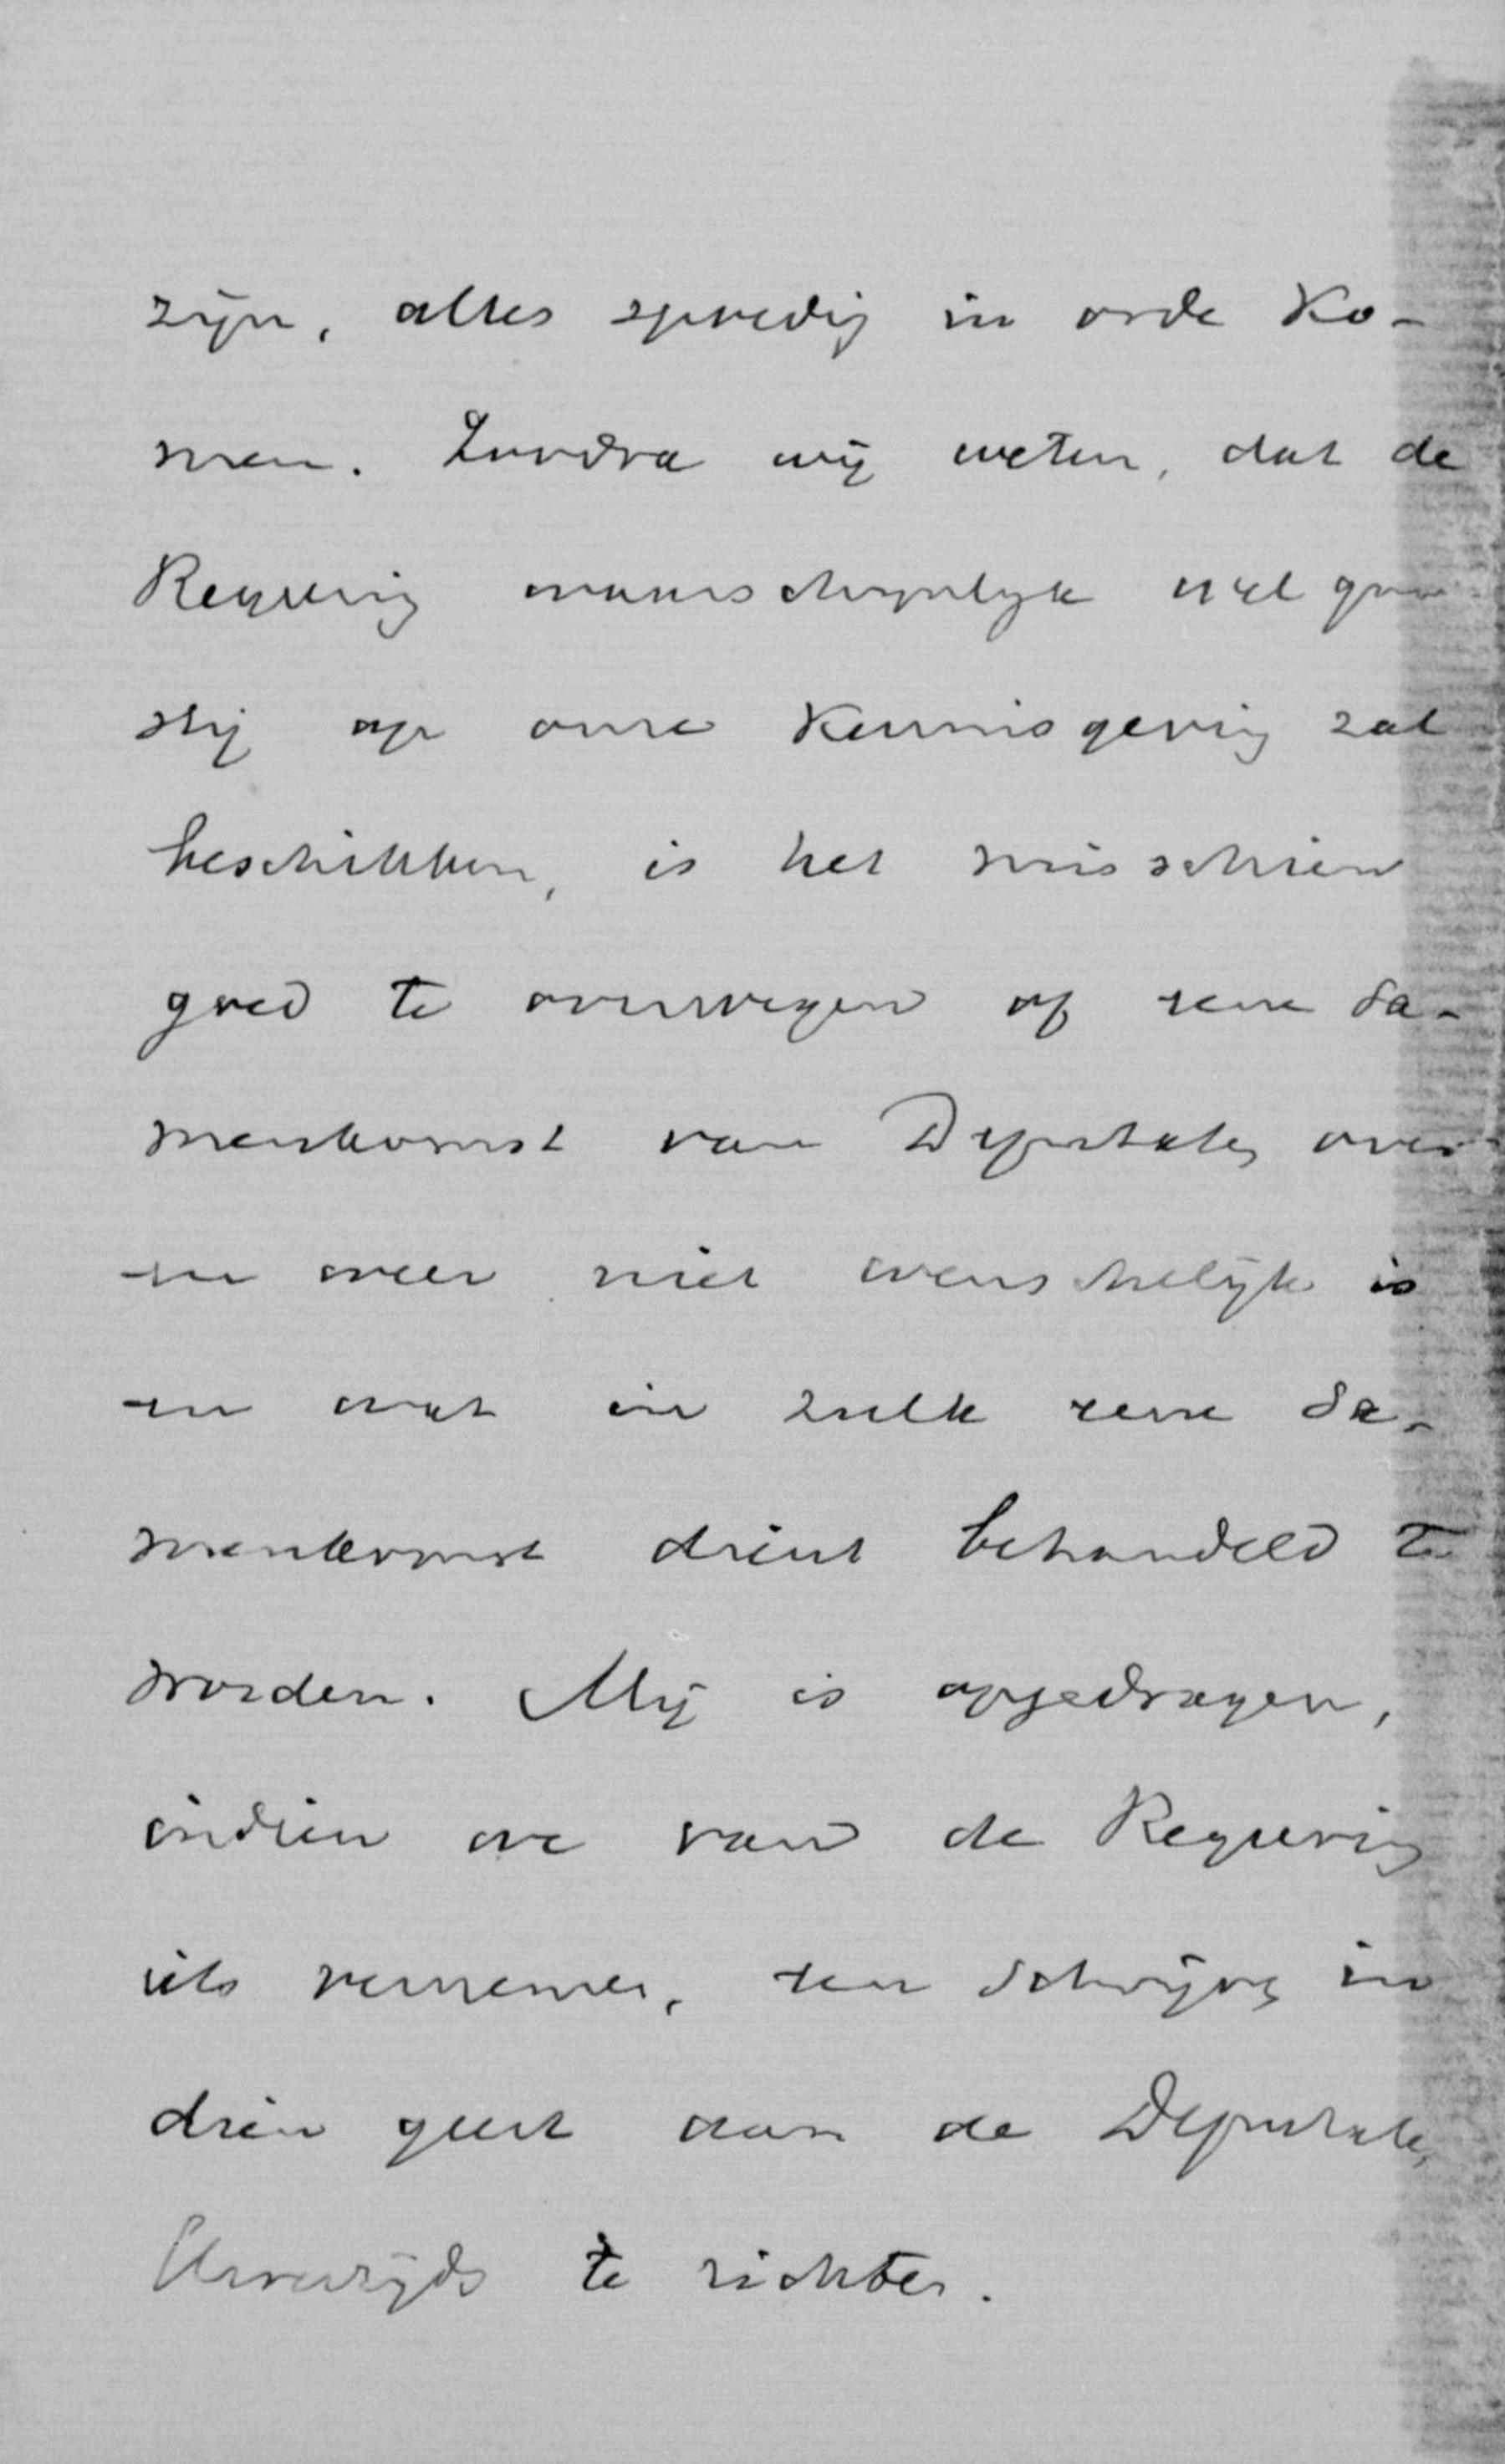 zijn, alles spoedig in orde ko-
men. Zoodra wij weten, dat de
Regeering waarschijnlijk wel gun
stig op onze kennisgeving zal
beschikken, is het misschien
goed te overwegen of eene sa-
menkomst van Deputaten over
en weer niet wenschelijk is
en wat in zulk eene sa-
menkomst dient behandeld te
worden. Mij is opgedragen,
indien we van de Regeering
iets vernemen, een schrijven in
dien geest aan de Deputaten
Uwerzijds te richten.